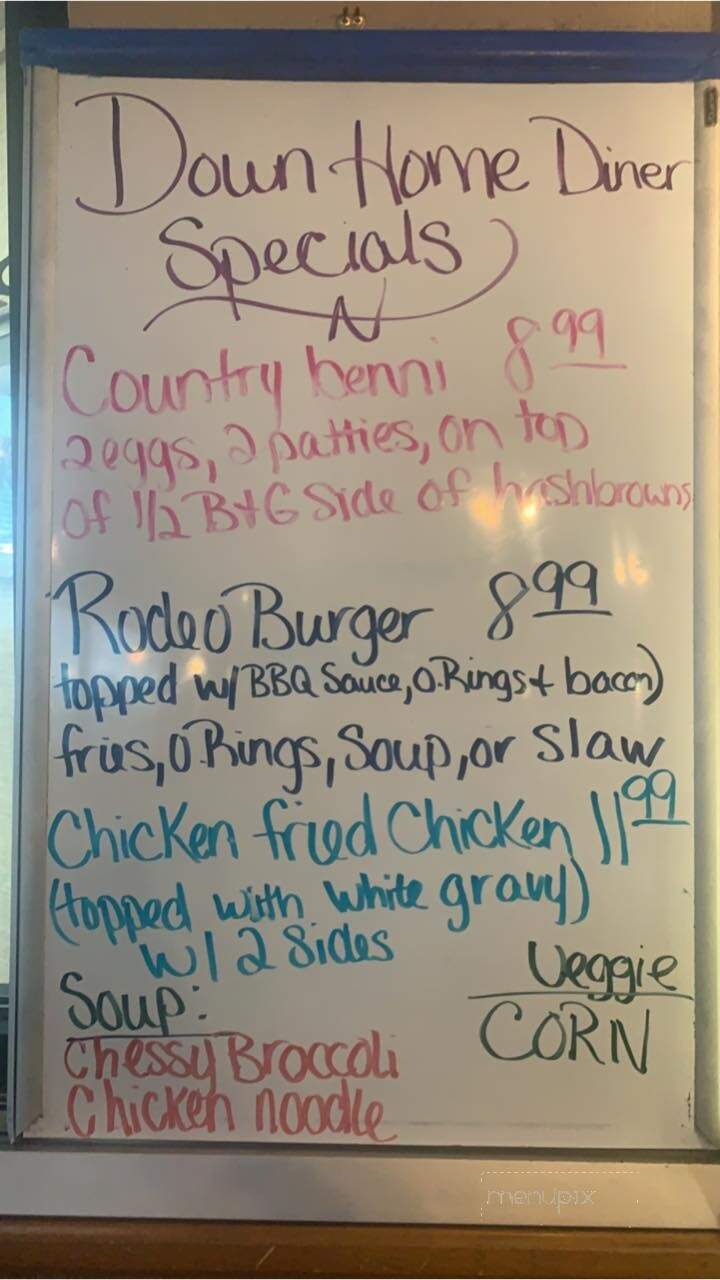 Down Home Diner
Specials
Country benni 8 99
2 eggs, 2 patties, on top
of 1/2 B+G Side of hashbrowns
Rodeo Burger 8 99
topped w/ BBQ Sauce, O.Rings + bacon)
fries, O Rings, Soup, or Slaw
Chicken fried Chicken 11 99
(topped with white gravy)
w/ 2 Sides
Soup:
Chessy Broccoli
Chicken noodle
Veggie
CORN
menupix